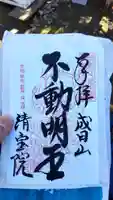 奉拝 成田山
不動明王
清宝院